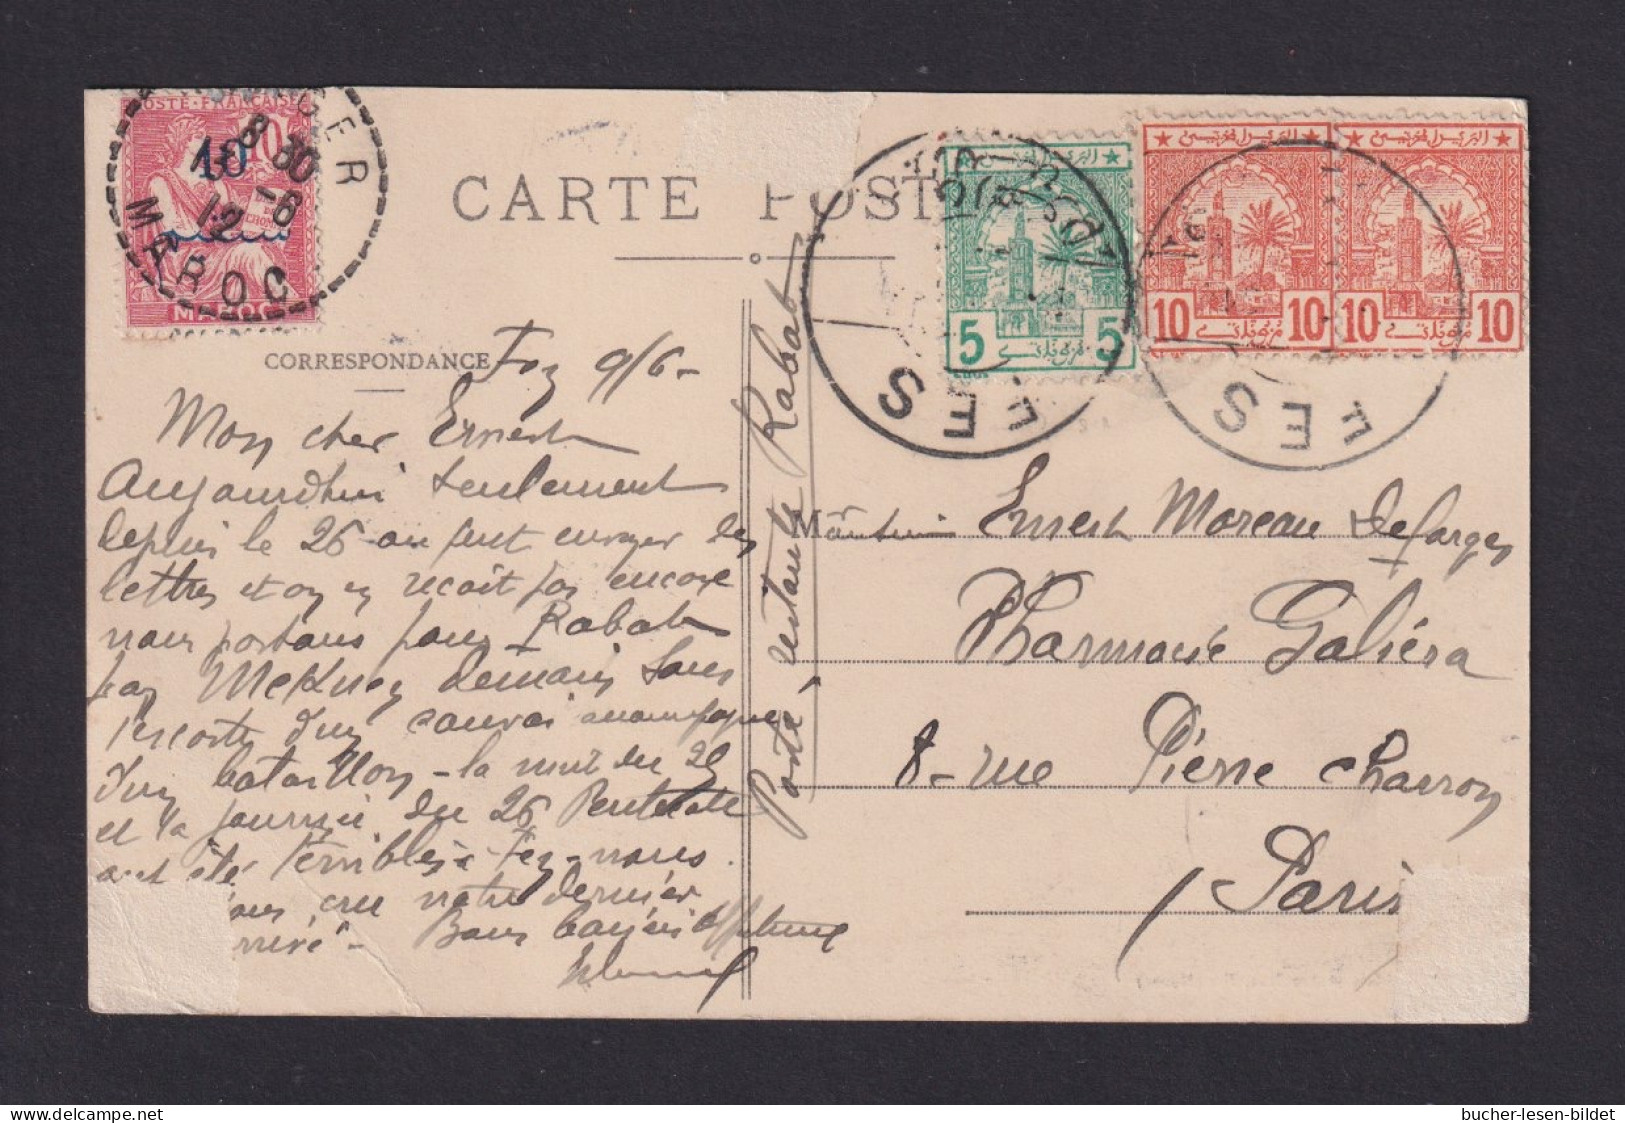 POSTE FRANÇAISE
10
10
MAROC
8 30
12 -6
12
MAROC
CARTE POST
البريد المخزني
5 5
موزونة
FES
البريد المخزني
10 10
البريد المخزني
10 10
FES
CORRESPONDANCE
Fez 9/6-
Mon cher Ernest
Aujourdhui seulement
depuis le 26 on peut envoyer des
lettres et on n'en reçoit pas encore
nous partons pour Rabat
par Meknez demain sous
l'escorte d'un convoi accompagné
d'un bataillon - la nuit du 25
et la journée du 26 Pentecote
ont été terribles à Fez - nous
cru notre dernier
arrivé - Bons baisers
Poste restante Rabat
Monsieur Ernest Moreau Defarges
Pharmacie Galiéra
8 - rue Pierre Charron
Paris
bucher-lesen-bildet